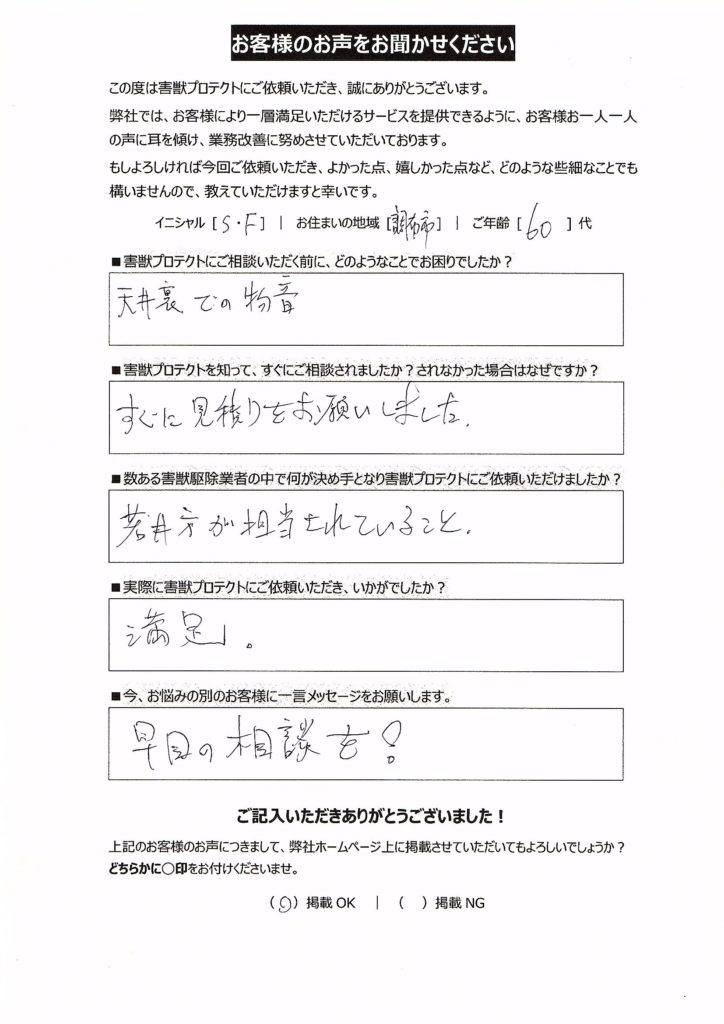 お客様のお声をお聞かせください
この度は害獣プロテクトにご依頼いただき、誠にありがとうございます。
弊社では、お客様により一層満足いただけるサービスを提供できるように、お客様お一人一人
の声に耳を傾け、業務改善に努めさせていただいております。
もしよろしければ今回ご依頼いただき、よかった点、嬉しかった点など、どのような些細なことでも
構いませんので、教えていただけますと幸いです。
イニシャル [ S・F ] | お住まいの地域 [調布市] | ご年齢 [ 60 ] 代
■害獣プロテクトにご相談いただく前に、どのようなことでお困りでしたか？
天井裏での物音
■害獣プロテクトを知って、すぐにご相談されましたか？されなかった場合はなぜですか？
すぐに見積りをお願いしました.
■数ある害獣駆除業者の中で何が決め手となり害獣プロテクトにご依頼いただけましたか？
井方が担当されていること.
■実際に害獣プロテクトにご依頼いただき、いかがでしたか？
満足。
■今、お悩みの別のお客様に一言メッセージをお願いします。
早目の相談を！
ご記入いただきありがとうございました！
上記のお客様のお声につきまして、弊社ホームページ上に掲載させていただいてもよろしいでしょうか？
どちらかに〇印をお付けくださいませ。
（〇）掲載 OK | （ ）掲載 NG